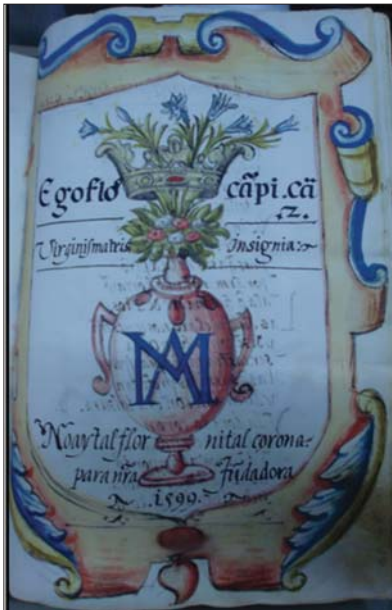 Ego flo cãpi. cã
.2.
Virginis matris Insignia:
MA
No ay tal flor ni tal corona
para nr̃a fũdadora
.1599.